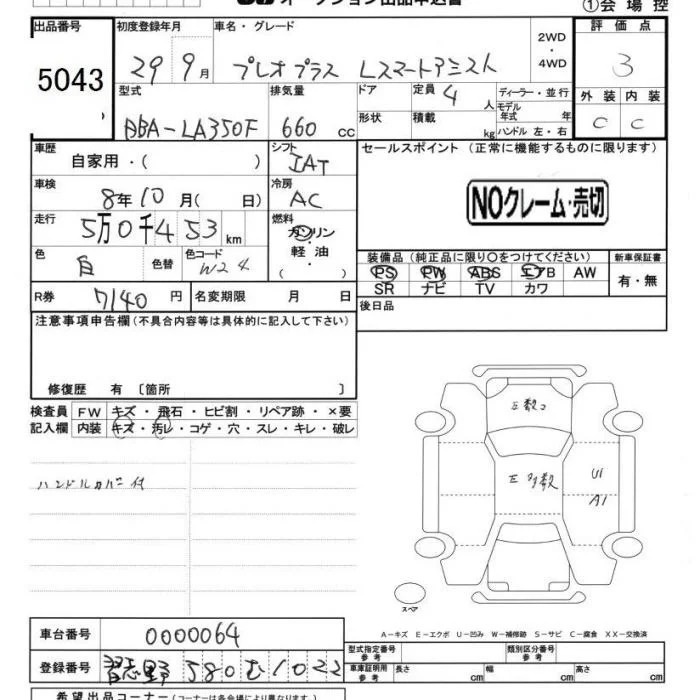 オークション出品申込書 ①会場控
出品番号 初度登録年月 車名・グレード 2WD・4WD 評価点
5043 29 9月 プレオプラス Lスマートアシスト 3
型式 排気量 ドア 定員 4人 ディーラー・並行 外装 内装
DBA-LA350F 660cc 形状 積載 kg モデル年式 年 ハンドル 左・右 C C
車歴 自家用・( ) シフト IAT セールスポイント (正常に機能するものに限ります)
車検 8年10月( 日) 冷房 AC NOクレーム・売切
走行 5万0千453km 燃料 ガソリン・軽油・( )
色 白 色替 色コード W24 装備品(純正品に限り○をつけてください) 新車保証書
PS PW ABS エアB AW 有・無
SR ナビ TV カワ
R券 7140円 名変期限 月 日 後日品
注意事項申告欄(不具合内容等は具体的に記入して下さい)
修復歴 有〔箇所 〕
検査員 FW キズ・飛石・ヒビ割・リペア跡・×要
記入欄 内装 キズ・汚レ・コゲ・穴・スレ・キレ・破レ
ハンドルカバー付
E多数
U1
A1
スペア
A-キズ E-エクボ U-凹み W-補修跡 S-サビ C-腐食 XX-交換済
車台番号 0000064 型式指定番号 参考 類別区分番号 参考
登録番号 習志野 580 む 1022 車庫証明用 参考 長さ cm 幅 cm 高さ cm
希望出品コーナー(コーナーは各会場により異なります)